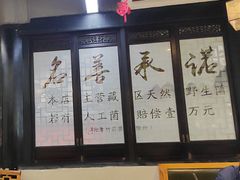 名善承诺
本店主营藏区天然野生
若有人工菌赔偿壹万元